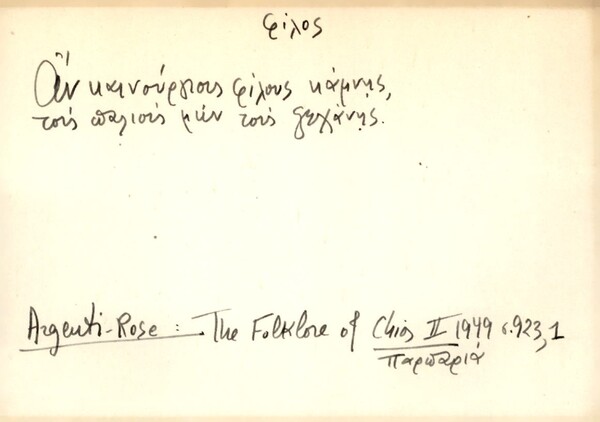 φίλος
Ἂν καινούργιους φίλους κάμνῃς,
τοὺς παλιοὺς μὴν τοὺς ξεχάνῃς.
Argenti-Rose : The Folklore of Chios II 1949 σ.923,1
Παρπαριά